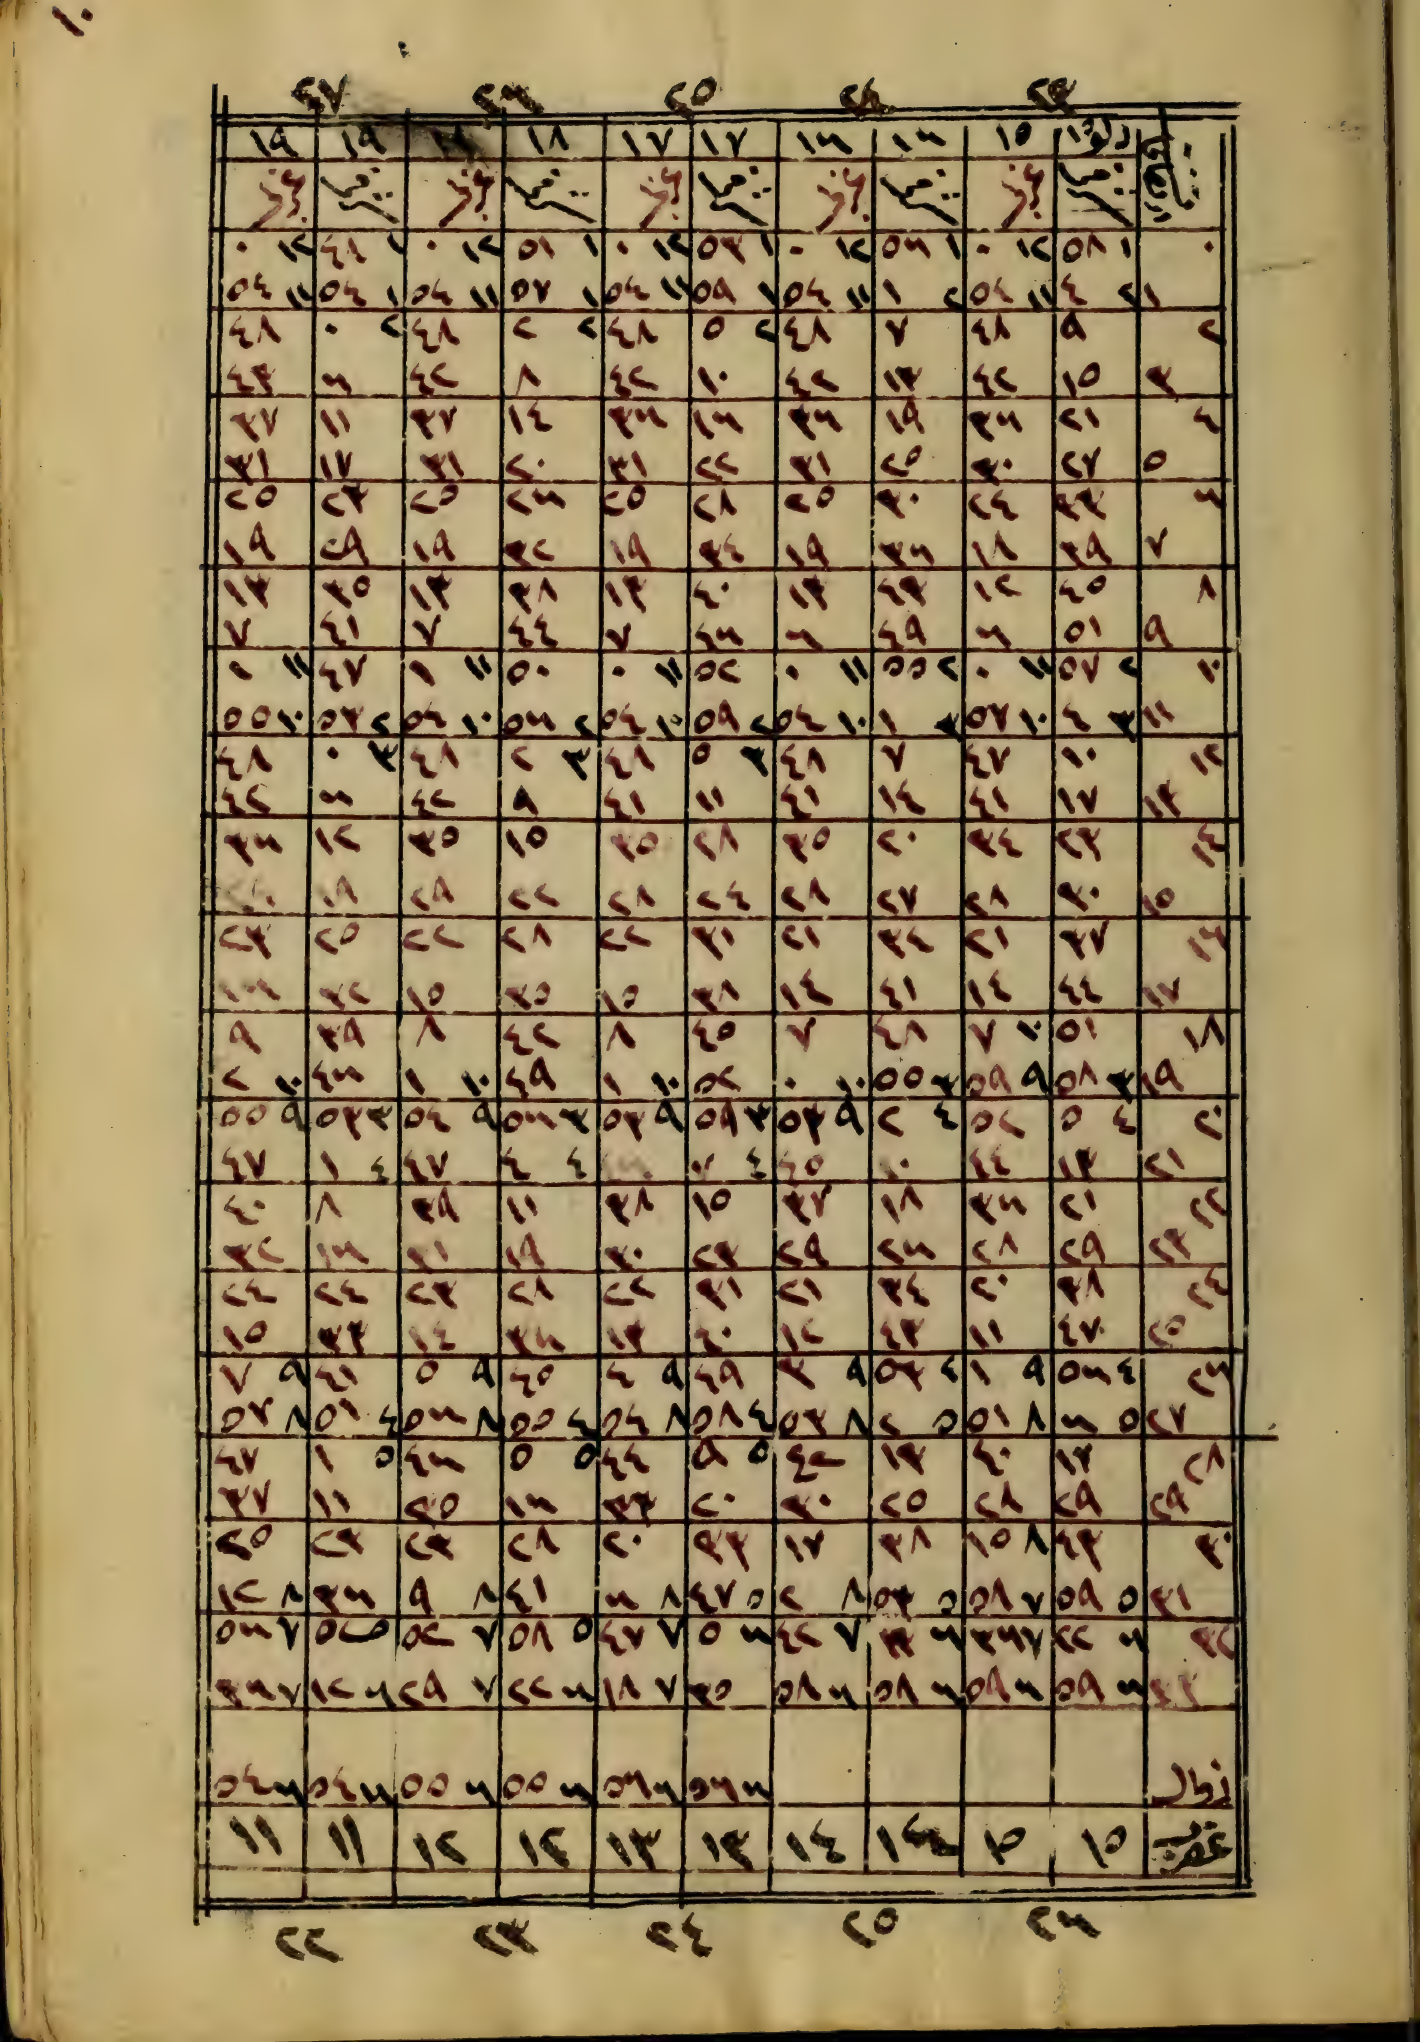 ١٠
٢٣ ٢٤ ٢٥ ٢٦ ٢٧
دلو ١٥ ١٦ ١٦ ١٧ ١٧ ١٨ ١٩ ١٩
٠ ١ ٥٨ ١٢ ٠ ١ ٥٦ ١٢ ٠ ١ ٥٣ ١٢ ٠ ١ ٥١ ١٢ ٠ ١ ١٢ ٠
١ ٢ ٤ ١١ ٥٤ ٢ ١ ١١ ٥٤ ١ ٥٩ ١١ ٥٤ ١ ٥٧ ١١ ٥٤ ١ ٥٤ ١١ ٥٤
٢ ٩ ٤٨ ٧ ٤٨ ٢ ٥ ٤٨ ٢ ٢ ٤٨ ٢ ٠ ٤٨
٣ ١٥ ٤٢ ١٣ ٤٢ ١٠ ٤٢ ٨ ٤٢ ٦ ٤٣
٤ ٢١ ٣٦ ١٩ ٣٦ ١٦ ٣٦ ١٤ ٣٧ ١١ ٣٧
٥ ٢٧ ٣٠ ٢٥ ٣١ ٢٢ ٣١ ٢٠ ٣١ ١٧ ٣١
٦ ٣٣ ٢٤ ٣٠ ٢٥ ٢٨ ٢٥ ٢٦ ٢٥ ٢٣ ٢٥
٧ ٣٩ ١٨ ٣٦ ١٩ ٣٤ ١٩ ٣٢ ١٩ ٢٩ ١٩
٨ ٤٥ ١٢ ٤٣ ١٣ ٤٠ ١٣ ٣٨ ١٣ ٣٥ ١٣
٩ ٥١ ٦ ٤٩ ٦ ٤٦ ٧ ٤٤ ٧ ٤١ ٧
١٠ ٢ ٥٧ ١١ ٠ ٢ ٥٥ ١١ ٠ ٥٢ ١١ ٠ ٥٠ ١١ ١ ٤٧ ١١ ١
١١ ٣ ٤ ١٠ ٥٧ ٣ ١ ١٠ ٥٤ ٢ ٥٩ ١٠ ٥٤ ٢ ٥٦ ١٠ ٥٤ ٢ ٥٣ ١٠ ٥٥
١٢ ١٠ ٤٧ ٧ ٤٨ ٣ ٥ ٤٨ ٣ ٢ ٤٨ ٣ ٠ ٤٨
١٣ ١٧ ٤١ ١٤ ٤١ ١١ ٤١ ٩ ٤٢ ٦ ٤٢
١٤ ٢٣ ٣٤ ٢٠ ٣٥ ١٨ ٣٥ ١٥ ٣٥ ١٢ ٣٦
١٥ ٣٠ ٢٨ ٢٧ ٢٨ ٢٤ ٢٨ ٢٢ ٢٩ ١٩
١٦ ٣٧ ٢١ ٣٤ ٢١ ٣١ ٢٢ ٢٨ ٢٢ ٢٥ ٢٣
١٧ ٤٤ ١٤ ٤١ ١٤ ٣٨ ١٥ ٣٥ ١٥ ٣٢ ١٦
١٨ ٥١ ١٠ ٧ ٤٨ ٧ ٤٥ ٨ ٤٢ ٨ ٣٩ ٩
١٩ ٣ ٥٨ ٩ ٥٩ ٣ ٥٥ ١٠ ٠ ٥٢ ١٠ ١ ٤٩ ١٠ ١ ٤٦ ١٠ ٢
٢٠ ٤ ٥ ٥٢ ٤ ٢ ٩ ٥٣ ٣ ٥٩ ٩ ٥٣ ٣ ٥٦ ٩ ٥٤ ٣ ٥٣ ٩ ٥٥
٢١ ١٣ ٤٤ ١٠ ٤٥ ٤ ٧ ٤ ٤ ٤٧ ٤ ١ ٤٧
٢٢ ٢١ ٣٦ ١٨ ٣٧ ١٥ ٣٨ ١١ ٣٩ ٨ ٤٠
٢٣ ٢٩ ٢٨ ٢٦ ٢٩ ٢٣ ٣٠ ١٩ ٣١ ١٦ ٣٢
٢٤ ٣٨ ٢٠ ٣٤ ٢١ ٣١ ٢٢ ٢٨ ٢٣ ٢٤ ٢٤
٢٥ ٤٧ ١١ ٤٣ ١٢ ٤٠ ١٣ ٣٦ ١٤ ٣٣ ١٥
٢٦ ٤ ٥٦ ٩ ١ ٤ ٥٣ ٩ ٣ ٤٩ ٩ ٤ ٤٥ ٩ ٥ ٤١ ٩ ٧
٢٧ ٥ ٦ ٨ ٥١ ٥ ٢ ٨ ٥٣ ٤ ٥٨ ٨ ٥٤ ٤ ٥٥ ٨ ٥٦ ٤ ٥١ ٨ ٥٧
٢٨ ١٧ ٤٠ ١٣ ٤٢ ٥ ٩ ٤٤ ٥ ٥ ٤٦ ٥ ١ ٤٧
٢٩ ٢٩ ٢٨ ٢٥ ٣٠ ٢٠ ٣٣ ١٦ ٣٥ ١١ ٣٧
٣٠ ٤٣ ٨ ١٥ ٣٨ ١٧ ٣٣ ٢٠ ٢٨ ٢٣ ٢٣ ٢٥
٣١ ٥ ٥٩ ٧ ٥٨ ٥ ٥٣ ٨ ٢ ٥ ٤٧ ٨ ٦ ٤١ ٨ ٩ ٣٦ ٨ ١٢
٣٢ ٦ ٢٢ ٧ ٣٦ ٦ ١٣ ٧ ٤٢ ٦ ٥ ٧ ٤٧ ٥ ٥٨ ٧ ٥٢ ٥ ٥٢ ٧ ٥٦
٣٣ ٦ ٥٩ ٦ ٥٩ ٦ ٥٨ ٦ ٥٨ ٣٥ ٧ ١٨ ٦ ٢٢ ٧ ٢٩ ٦ ١٢ ٧ ٣٦
زوال ٦ ٥٦ ٦ ٥٦ ٦ ٥٥ ٦ ٥٥ ٦ ٥٤ ٦ ٥٤
عقرب ١٥ ١٥ ١٤ ١٤ ١٣ ١٣ ١٢ ١٢ ١١ ١١
٢٦ ٢٥ ٢٤ ٢٣ ٢٢